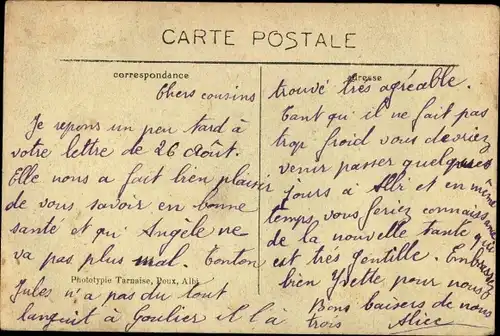 CARTE POSTALE
correspondance
adresse
Chers cousins
Je repons un peu tard à
votre lettre de 26 Août.
Elle nous a fait bien plaisir
de vous savoir en bonne
santé et qu'Angèle ne
va pas plus mal. Tonton
Phototypie Tarnaise, Poux, Albi
Jules n'a pas du tout
languit à Goulier il l'à
trouvé très agréable.
Tant qu'il ne fait pas
trop froid vous devriez
venir passer quelques
jours à Albi et en même
temps, vous feriez connaissance
de la nouvelle tante qui
est très gentille. Embrassez
bien Yvette pour nous
Bons baisers de nous
trois Alice